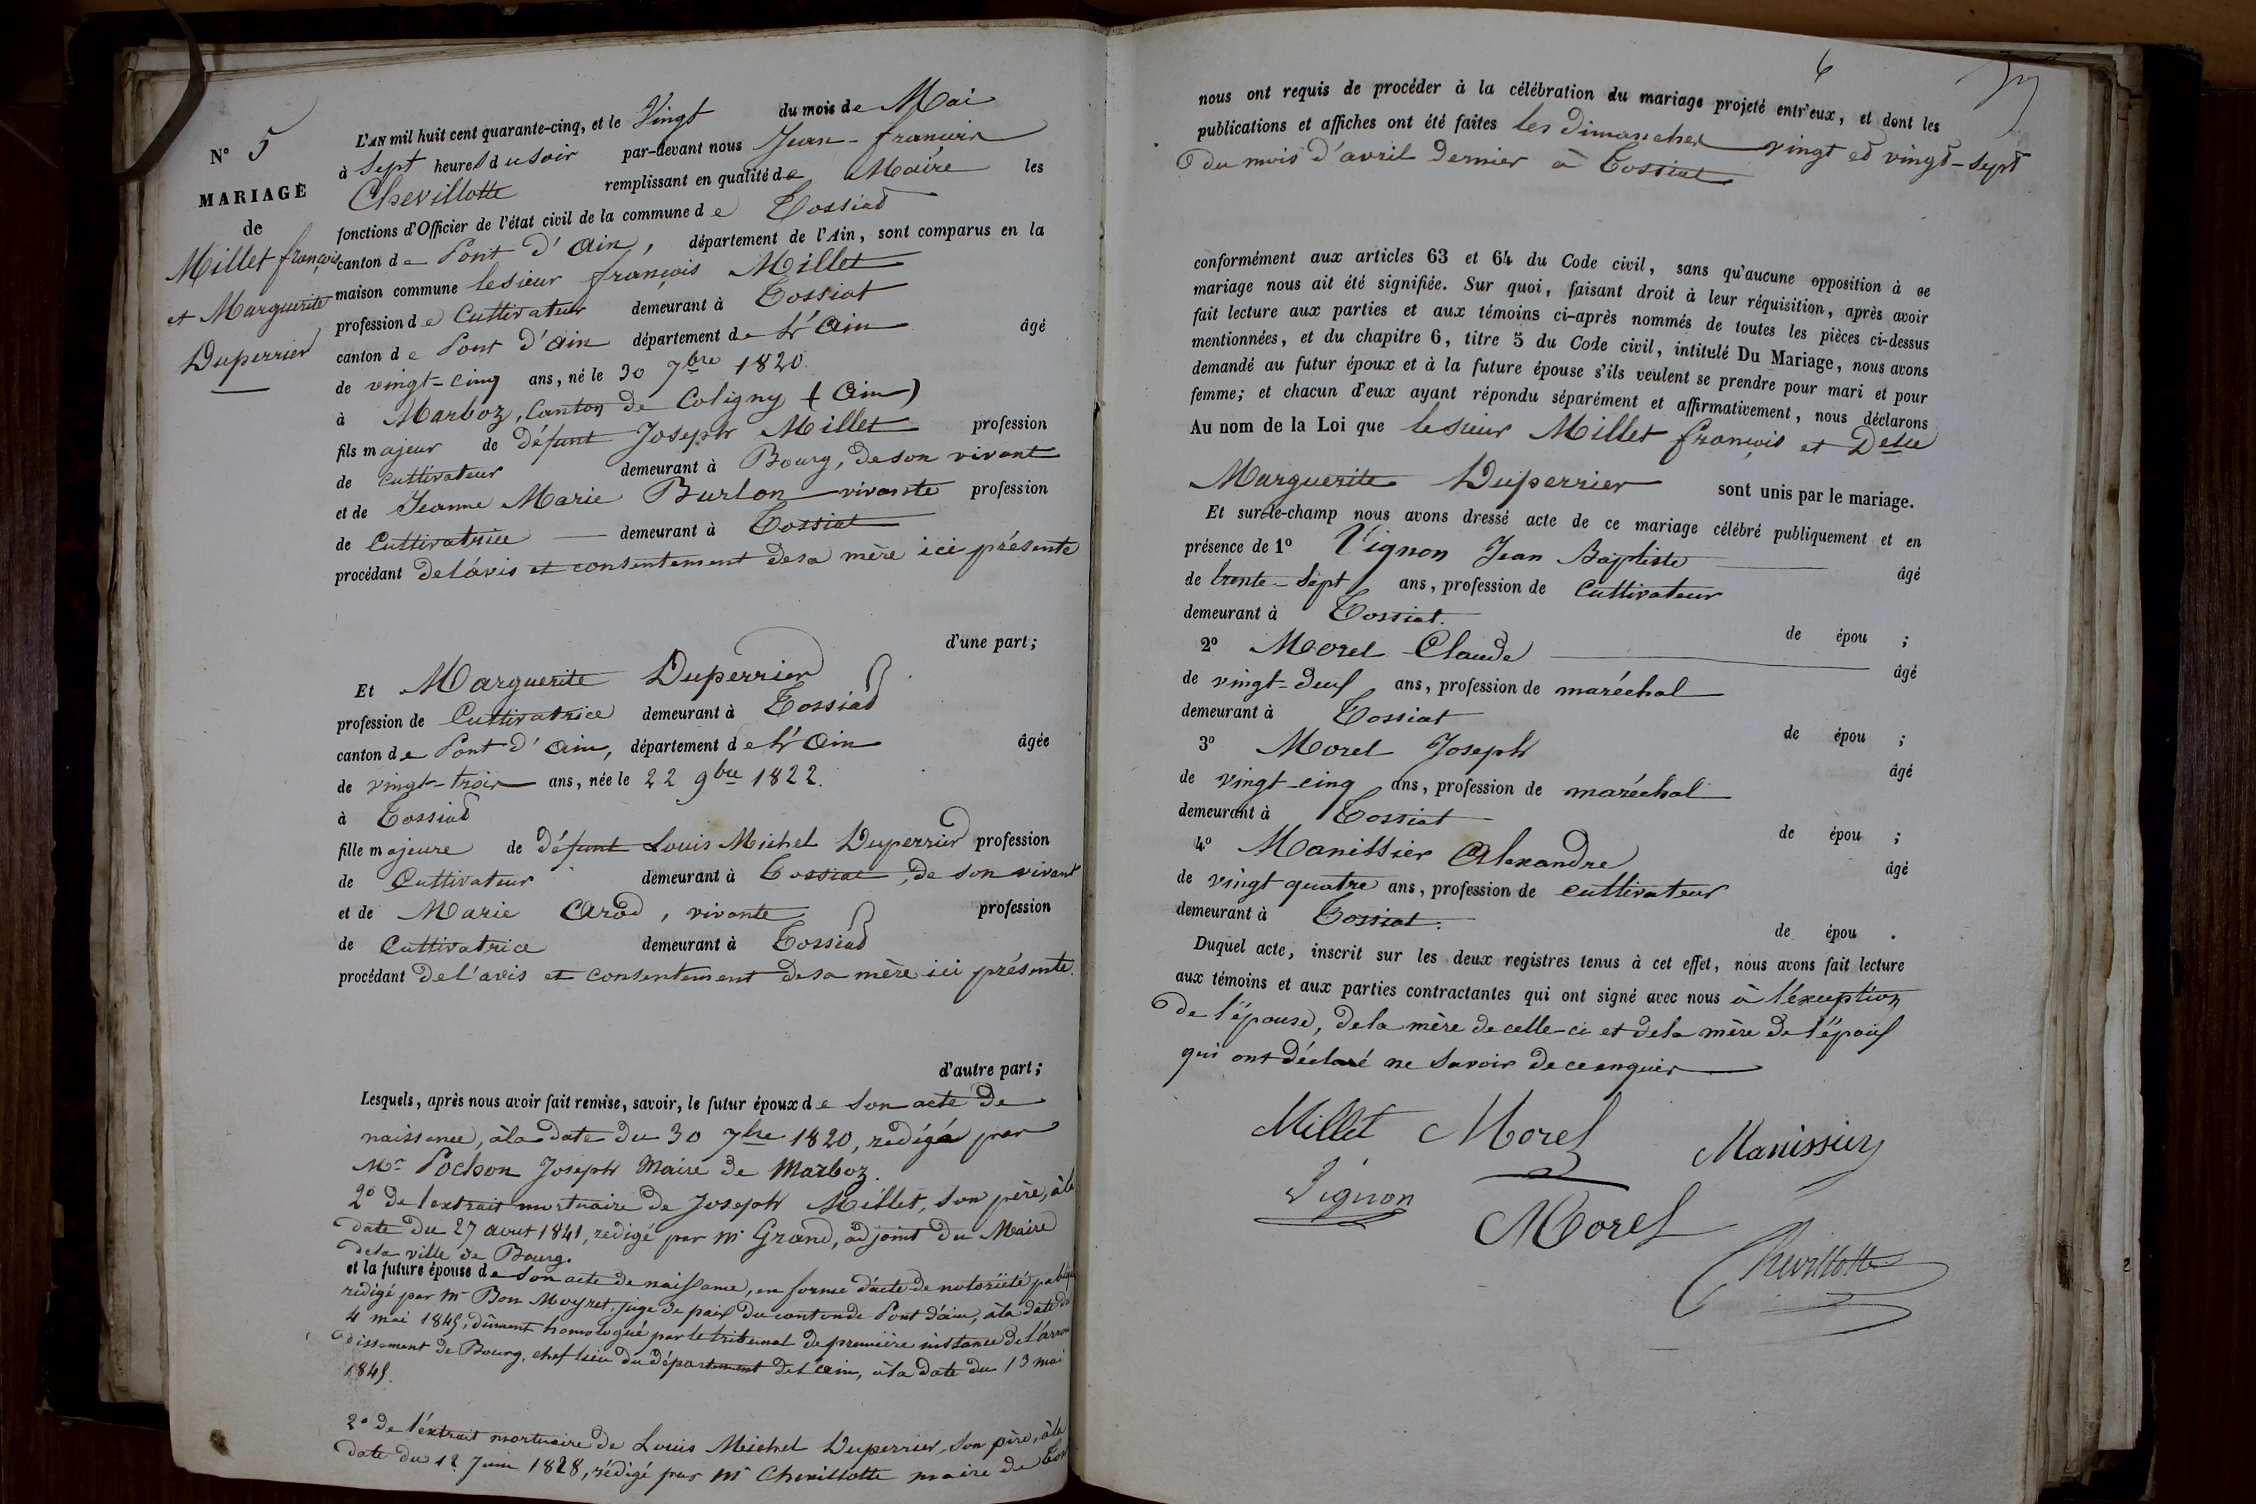 N° 5
MARIAGE
de
Millet françois
et Marguerite
Duperrier
L'AN mil huit cent quarante-cinq, et le Vingt du mois de Mai
à Sept heures du soir par-devant nous Jean-francois
Chevillotte remplissant en qualité de Maire les
fonctions d'Officier de l'état civil de la commune de Tossiat
canton de Pont d'ain, département de l'Ain, sont comparus en la
maison commune le sieur françois Millet
profession de Cultivateur demeurant à Tossiat
canton de Pont d'ain département de L'ain âgé
de vingt-cinq ans, né le 30 7bre 1820.
à Marboz, Canton de Coligny (ain)
fils majeur de défunt Joseph Millet profession
de cultivateur demeurant à Bourg, de son vivant
et de Jeanne Marie Burlon vivante profession
de Cultivatrice demeurant à Tossiat
procédant de l'avis et consentement de sa mère ici présente
d'une part;
Et Marguerite Duperrier
profession de Cultivatrice demeurant à Tossiat
canton de Pont d'ain, département de L'ain âgée
de vingt-trois ans, née le 22 9bre 1822.
à Tossiat
fille majeure de défunt Louis Michel Duperrier profession
de Cultivateur demeurant à Tossiat, de son vivant
et de Marie Carod, vivante profession
de Cultivatrice demeurant à Tossiat
procédant de l'avis et consentement de sa mère ici présente.
d'autre part;
Lesquels, après nous avoir fait remise, savoir, le futur époux de son acte de
naissance, à la date du 30 7bre 1820, rédigé par
Mr Pochon Joseph Maire de Marboz.
2° de l'extrait mortuaire de Joseph Millet, son père, à la
date du 27 aout 1841, redigé par mr Grand, adjoint du Maire
de la ville de Bourg.
et la future épouse de son acte de naissance, en forme d'acte de notoriété publique
rédigé par mr Bon Moyret, juge de paix du canton de Pont d'ain, à la date du
4 mai 1845, dûment homologué par le tribunal de première instance de l'arron
dissement de Bourg, chef lieu du département de l'ain, à la date du 13 mai
1845.
2° de l'extrait mortuaire de Louis Michel Duperrier, son père, à la
date du 12 Juin 1828, rédigé par mr Chevillotte maire de
6
nous ont requis de procéder à la célébration du mariage projeté entr'eux, et dont les
publications et affiches ont été faites les dimanches vingt et vingt-sept
du mois d'avril dernier à Tossiat
conformément aux articles 63 et 64 du Code civil, sans qu'aucune opposition à ce
mariage nous ait été signifiée. Sur quoi, faisant droit à leur réquisition, après avoir
fait lecture aux parties et aux témoins ci-après nommés de toutes les pièces ci-dessus
mentionnées, et du chapitre 6, titre 5 du Code civil, intitulé Du Mariage, nous avons
demandé au futur époux et à la future épouse s'ils veulent se prendre pour mari et pour
femme; et chacun d'eux ayant répondu séparément et affirmativement, nous déclarons
Au nom de la Loi que le sieur Millet françois et Delle
Marguerite Duperrier sont unis par le mariage.
Et sur-le-champ nous avons dressé acte de ce mariage célébré publiquement et en
présence de 1° Vignon Jean Baptiste âgé
de trente-sept ans, profession de Cultivateur
demeurant à Tossiat. de épou ;
2° Morel Claude âgé
de vingt-deux ans, profession de maréchal
demeurant à Tossiat de épou ;
3° Morel Joseph âgé
de vingt-cinq ans, profession de maréchal
demeurant à Tossiat de épou ;
4° Manissier Alexandre âgé
de vingt quatre ans, profession de cultivateur
demeurant à Tossiat. de épou .
Duquel acte, inscrit sur les deux registres tenus à cet effet, nous avons fait lecture
aux témoins et aux parties contractantes qui ont signé avec nous à l'exception
de l'épouse, de la mère de celle-ci et de la mère de l'époux
qui ont déclaré ne savoir de ce enquis
Millet Morel Manissier
Vignon Morel
Chevillotte